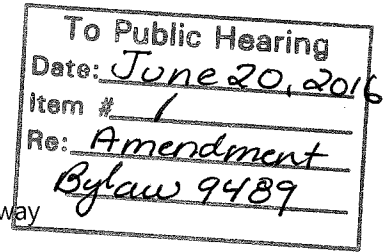 To Public Hearing
Date: June 20, 2016
Item # 1
Re: Amendment
Bylaw 9489
way